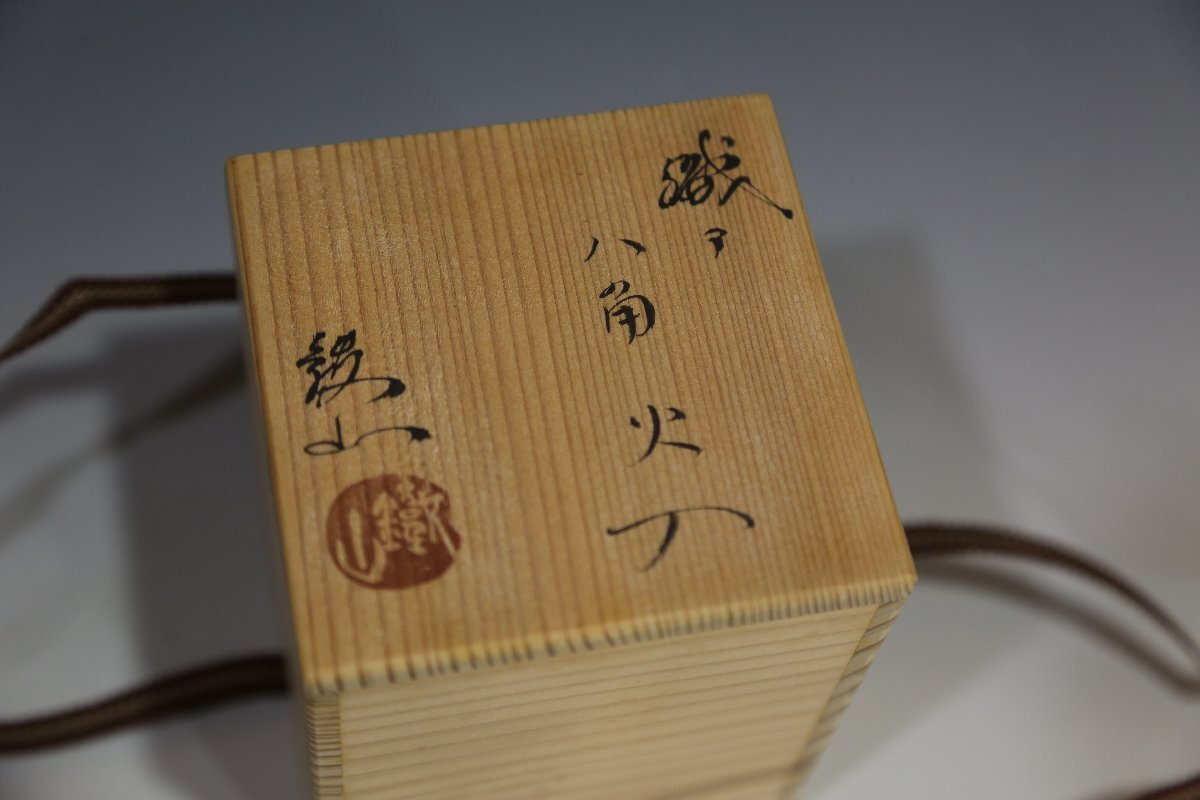 織部
八角火入
鐵山
鐵山